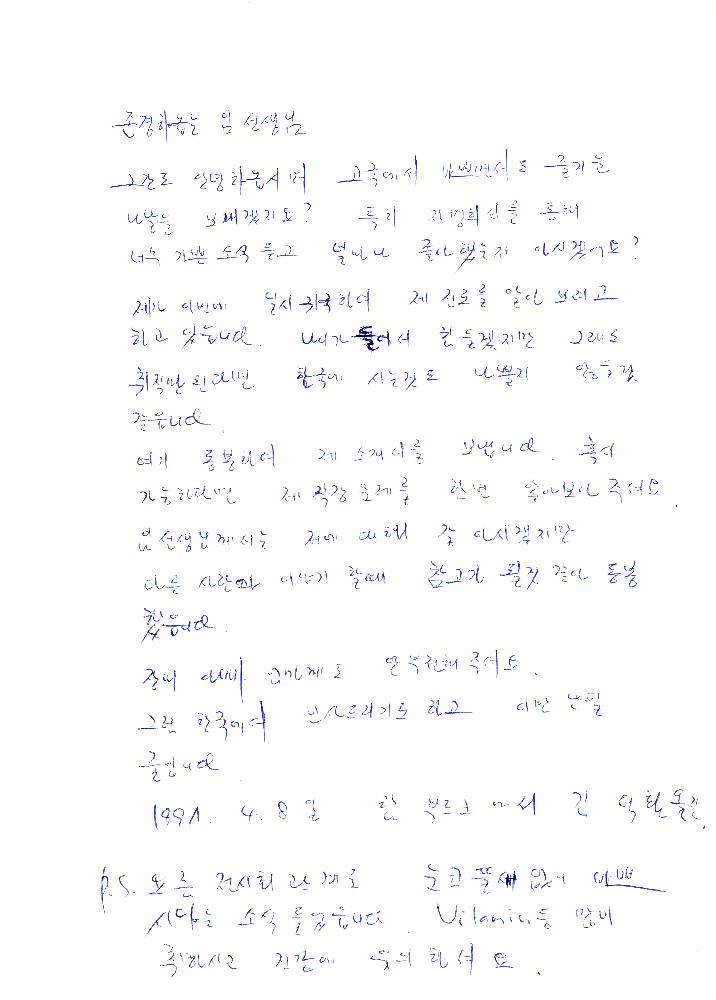 존경하옵는 임 선생님
그간도 안녕하옵시며 고국에서 바쁘면서도 즐거운
나날을 보내겠지요? 특히 를 통해
너무 기쁜 소식 듣고 얼마나 좋아했는지 아시겠어요?
제가 이번에 일시 귀국하여 제 진로를 알아 보려고
하고 있읍니다. 나이가 들어서 힘들겠지만 그래도
취직만 된다면 한국에 사는것도 나쁠지 않을것
같읍니다.
여기 동봉하여 제 소개서를 보냅니다. 혹시
가능하다면 제 직장 문제를 한번 알아보아 주셔요.
임선생님께서는 저에 대해 잘 아시겠지만
다른 사람과 이야기 할때 참고가 될것 같아 동봉
했읍니다.
아빠 엄마께도 안부전해 주셔요.
그럼 한국에서 인사드리기로 하고 이만 난필
줄입니다.
1991. 4. 8일 함부르크에서 김덕환올림.
P.S. 요즘 전시회 관계로 눈코뜰새 없이 바쁘
시다는 소식 들었읍니다. Vitamin등 많이
취하시고 건강에 유의 하셔요.